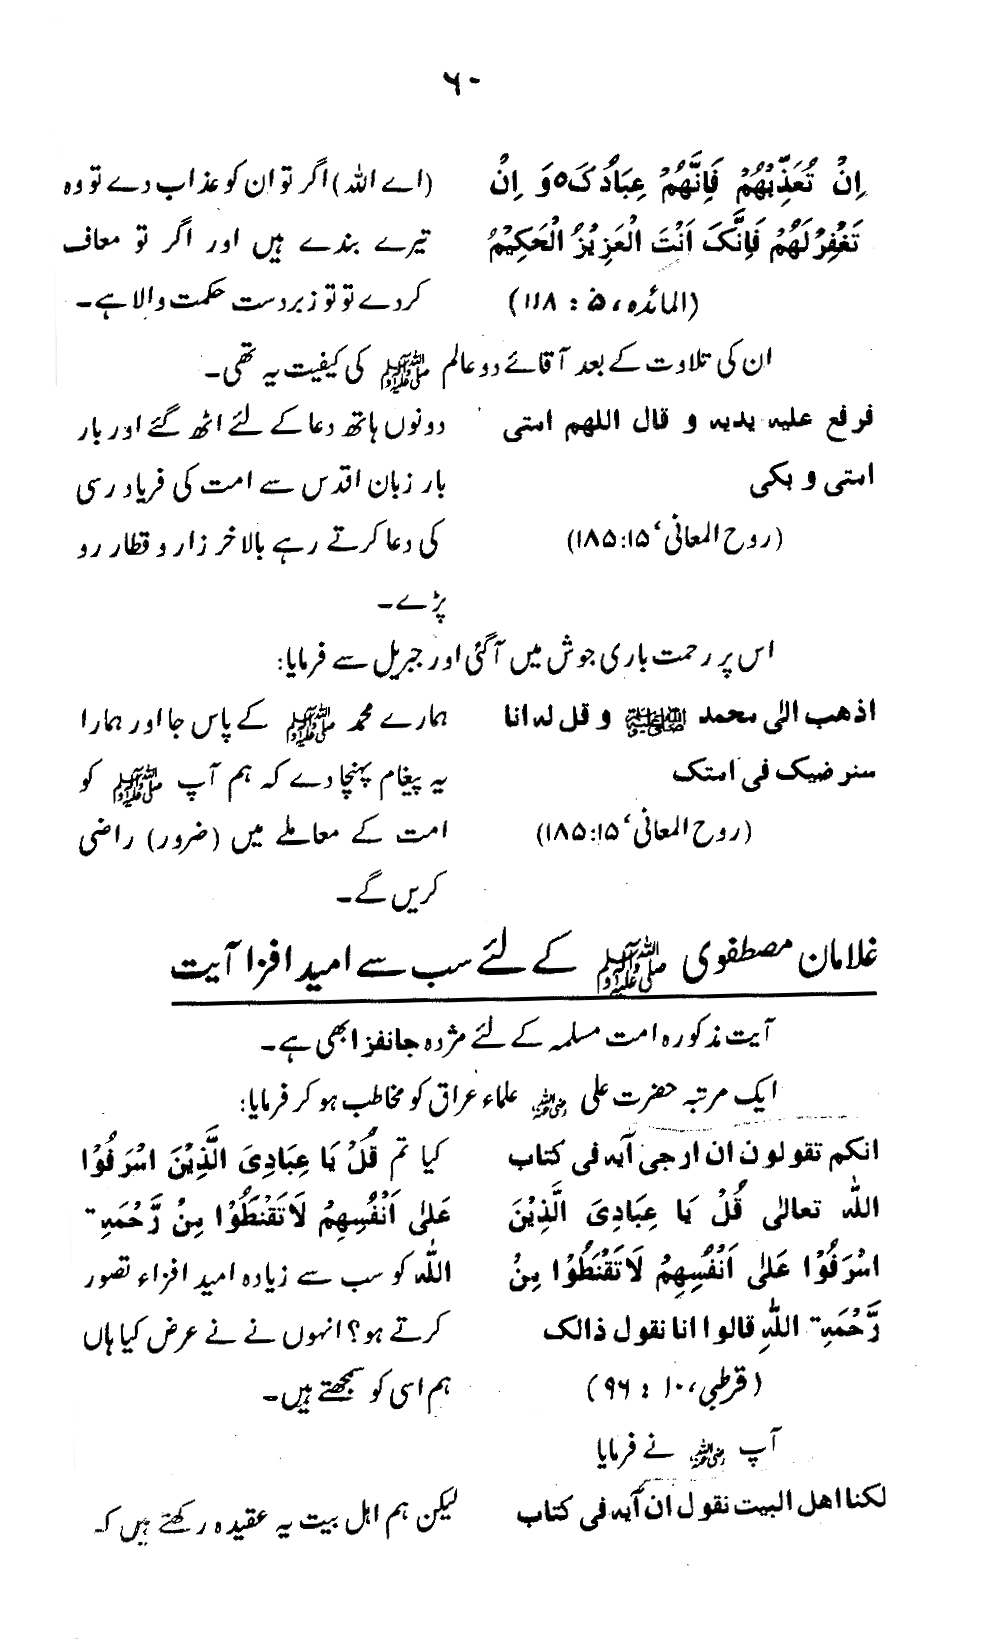 ۶۰
اِنْ تُعَذِّبْهُمْ فَاِنَّهُمْ عِبَادُکَ٥ وَ اِنْ
تَغْفِرْلَهُمْ فَاِنَّکَ اَنْتَ الْعَزِیْزُ الْحَکِیْمُ
(المائدہ، ۵ : ۱۱۸)
(اے اللہ) اگر تو ان کو عذاب دے تو وہ
تیرے بندے ہیں اور اگر تو معاف
کردے تو تو زبردست حکمت والا ہے۔
ان کی تلاوت کے بعد آقائے دو عالم ﷺ کی کیفیت یہ تھی۔
فرفع علیہ یدیہ و قال اللھم امتی
امتی و بکی
(روح المعانی، ۱۵:۱۸۵)
دونوں ہاتھ دعا کے لئے اٹھ گئے اور بار
بار زبان اقدس سے امت کی فریاد رسی
کی دعا کرتے رہے بالاخر زار و قطار رو
پڑے۔
اس پر رحمت باری جوش میں آگئی اور جبریل سے فرمایا:
اذھب الی محمد ﷺ و قل لہ انا
سنرضیک فی امتک
(روح المعانی، ۱۵:۱۸۵)
ہمارے محمد ﷺ کے پاس جا اور ہمارا
یہ پیغام پہنچا دے کہ ہم آپ ﷺ کو
امت کے معاملے میں (ضرور) راضی
کریں گے۔
غلامان مصطفوی ﷺ کے لئے سب سے امید افزا آیت
آیت مذکورہ امت مسلمہ کے لئے مژدہ جانفزا بھی ہے۔
ایک مرتبہ حضرت علی رضی اللہ عنہ علماء عراق کو مخاطب ہو کر فرمایا:
انکم تقولون ان ارجی آیہ فی کتاب
اللہ تعالی قُلْ یَا عِبَادِیَ الَّذِیْنَ
اسْرَفُوْا عَلٰی اَنْفُسِهِمْ لَاتَقْنَطُوْا مِنْ
رَّحْمَۃِ اللّٰہِ قالوا انا نقول ذالک
(قرطبی، ۱۰ : ۹۶)
کیا تم قُلْ یَا عِبَادِیَ الَّذِیْنَ اسْرَفُوْا
عَلٰی اَنْفُسِهِمْ لَاتَقْنَطُوْا مِنْ رَّحْمَۃِ
اللّٰہ کو سب سے زیادہ امید افزاء تصور
کرتے ہو؟ انہوں نے نے عرض کیا ہاں
ہم اسی کو سمجھتے ہیں۔
آپ رضی اللہ عنہ نے فرمایا
لکنا اھل البیت نقول ان آیہ فی کتاب
لیکن ہم اہل بیت یہ عقیدہ رکھتے ہیں کہ